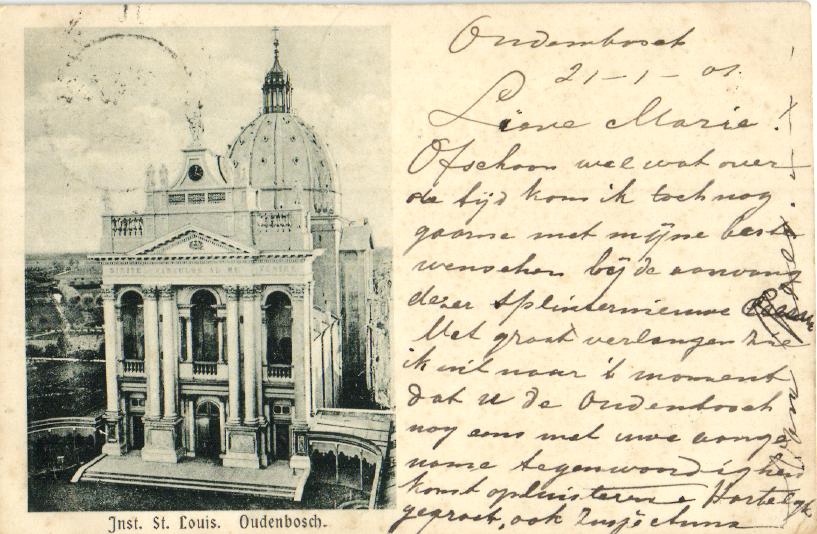 Oudenbosch
21-1-01
Lieve Marie!
Ofschoon wel wat over
de tijd kom ik toch nog
gaarne met mijne beste
wenschen bij de aanvang
dezer splinternieuwe
Met groot verlangen zie
ik uit naar 't moment
dat u de Oudenbosch
nog eens met uwe aange
name tegenwoordigheid
komt opluisteren. Hartelijk
gegroet, ook
SINITE PARVULOS AD ME VENIRE
Inst. St. Louis. Oudenbosch.